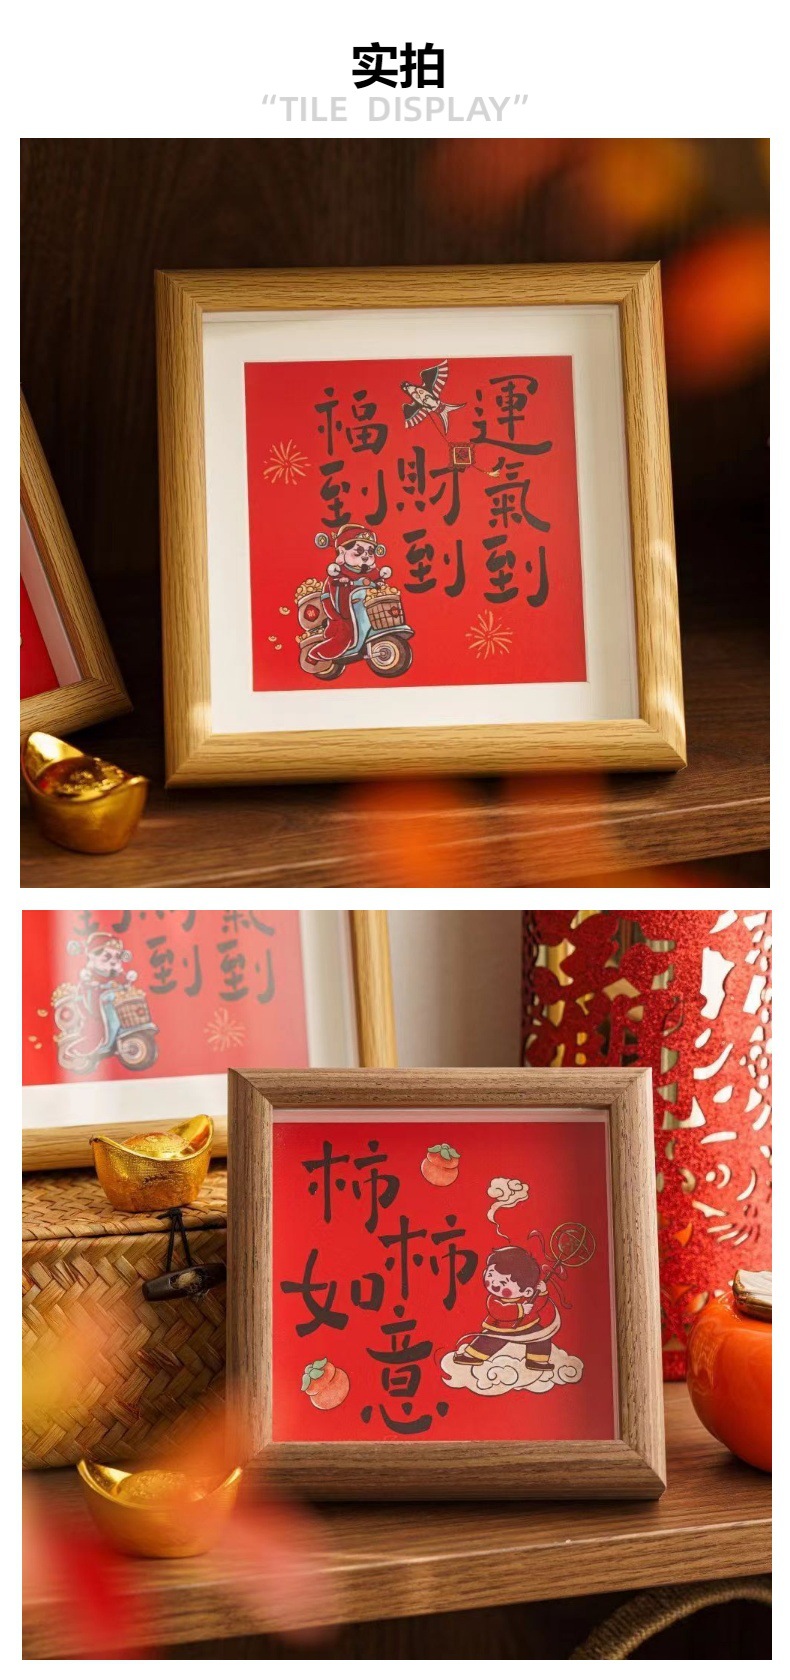 实拍
“TILE DISPLAY”
福到
財到
運氣到
到
到
柿
柿
如
意